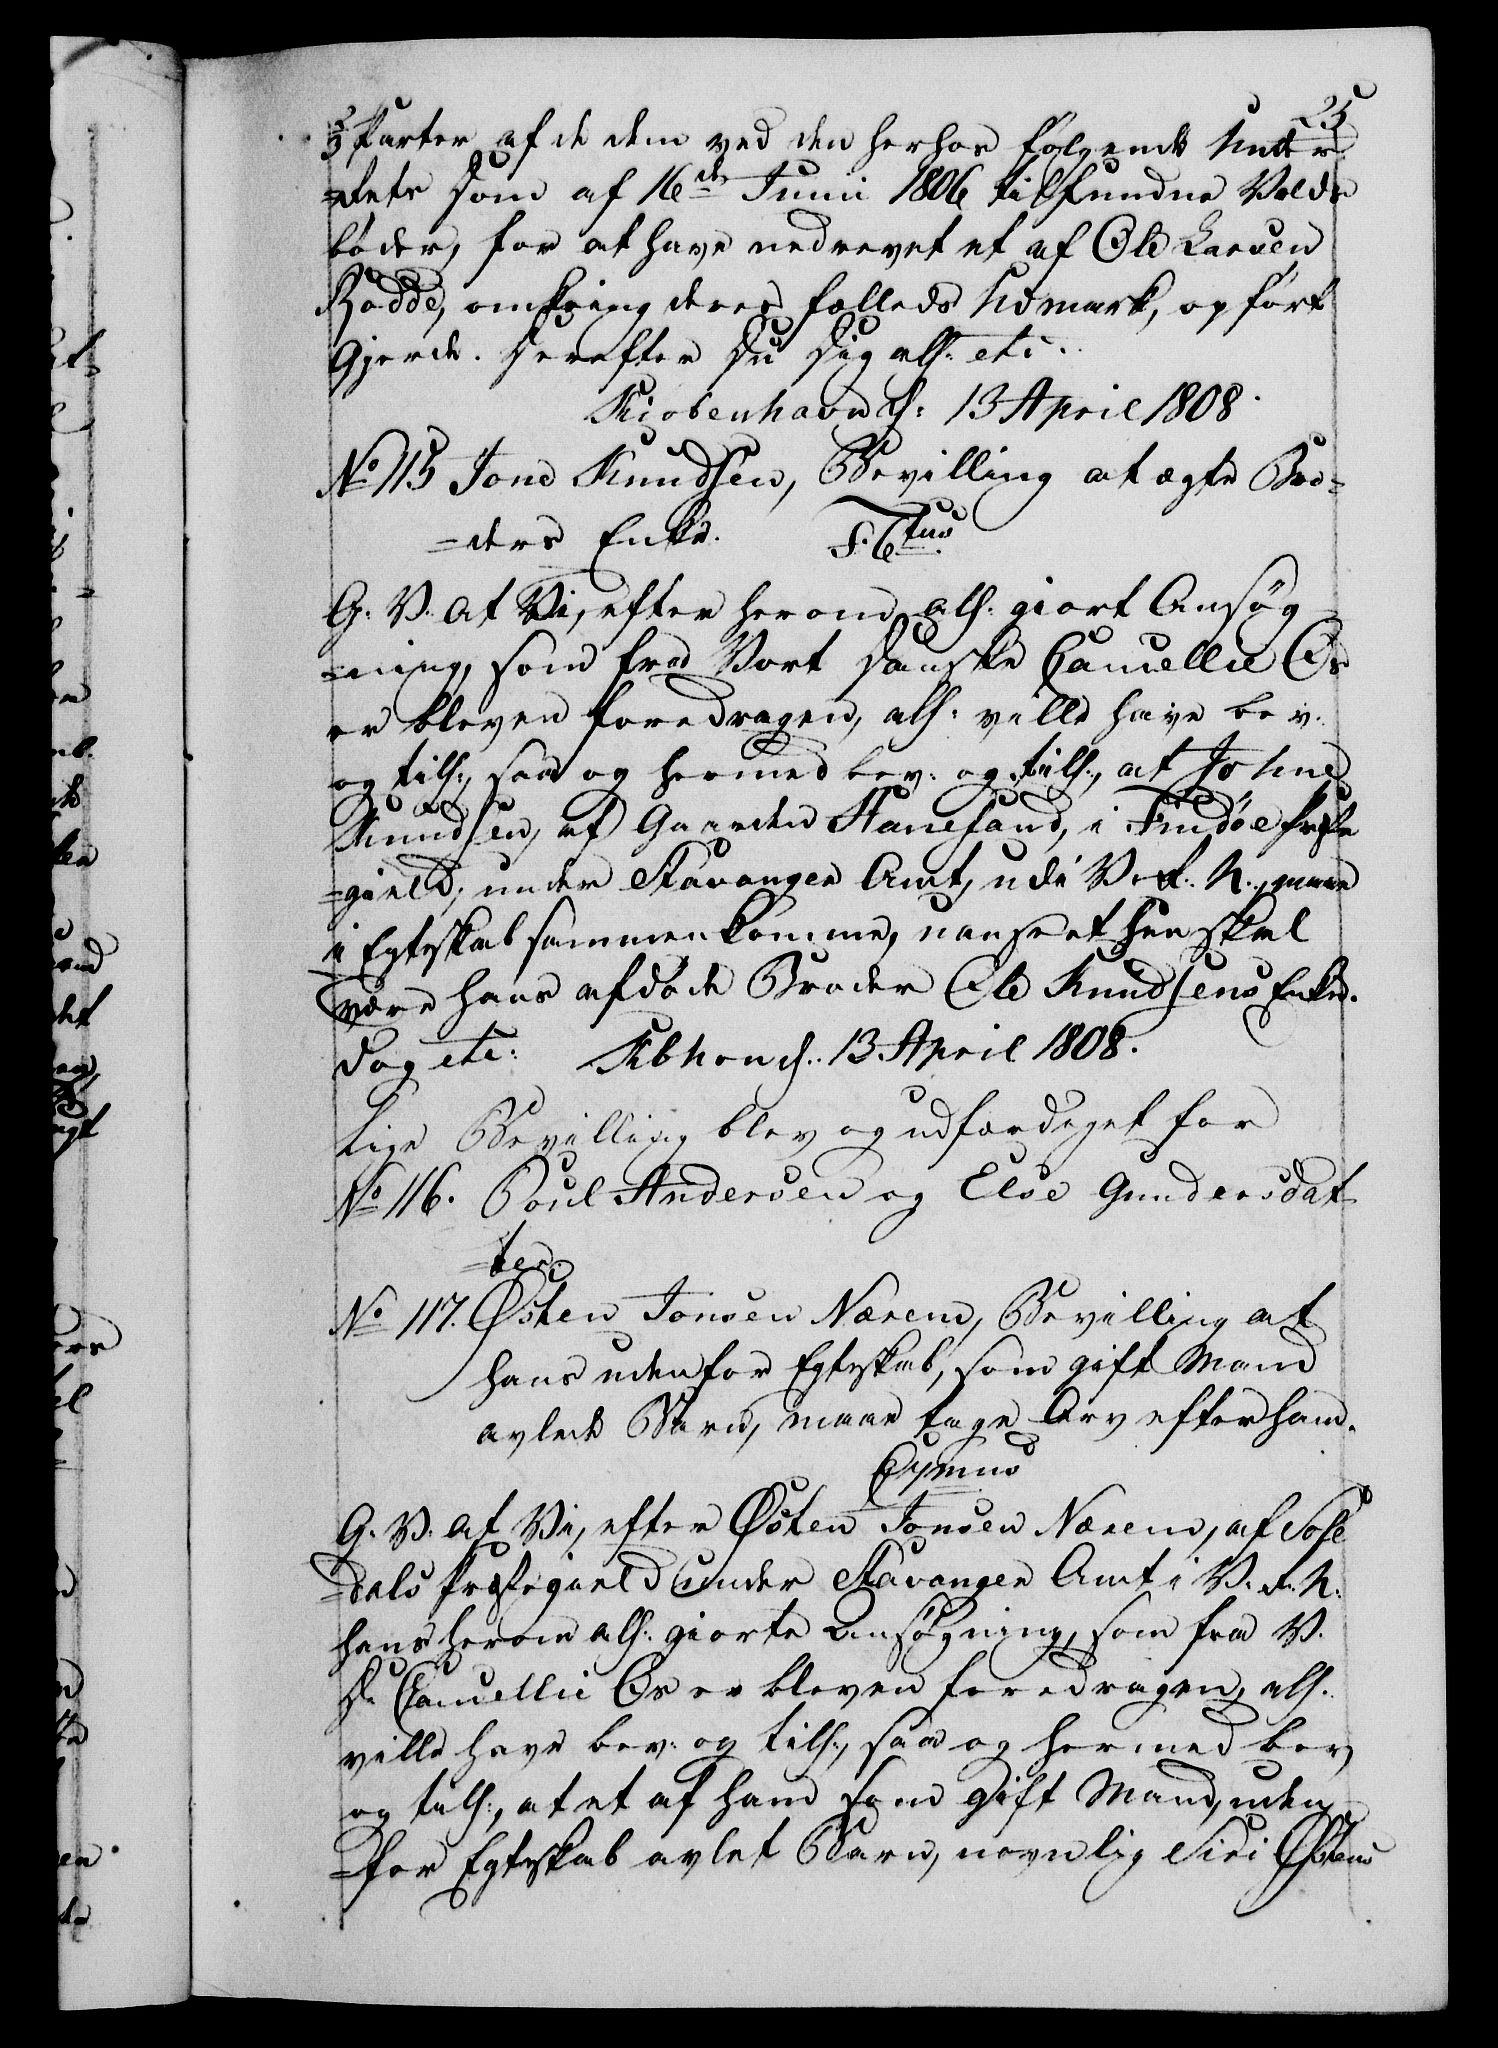 25
2/3 Parter af de dem ved den herhos følgende Under-
=Rets Dom af 16de Junii 1806 tilfundne Volds
bøder, for at have nedrevet et af Ole Larsen
Rødde, omkring deres fælleds Udmark, opført
Gjerde. Derefter Du Dig all: etc.
Kiøbenhavn d: 13 April 1808.
No 115 Jone Knudsen, Bevilling at ægte Bro=
=ders Enke. F. 6tus
G. V. at Vi, efter herom all: giort Ansøg
=ning, som fra Vort Danske Cancellie Os
er bleven foredragen, all: ville have bev:
og till:, saa og hermed bev: og till:, at Johne
Knudsen, af Gaarden Hanesand, i Findøe Præste
=gield, under Stavanger Amt, udi Vort R. N., maae
i Egteskab sammenkomme, uanseet hun skal
være hans afdøde Broder Ole Knudsens Enke.
Dog etc: Kbhavn d: 13 April 1808.
Lige Bevilling blev og udfærdiget for
No 116. Poul Andersen og Else Gundersdat
=ter.
No 117. Østen Jonsen Nærem, Bevilling at
hans udenfor Egteskab, som gift Mand
avlede Barn, maae tage Arv efter ham.
Gymus
G. V. at Vi, efter Østen Jonsen Nærem, af
=dals Præstegield under Stavanger Amt i V. R. N.
hans herom all: giorte Ansøgning, som fra V.
D. Cancellie Os er bleven foredragen, all:
ville have bev: og till:, saa og hermed bev
og till:, at et af ham som gift Mand, uden
=for Egteskab avlet Barn, navnlig Siri Østens